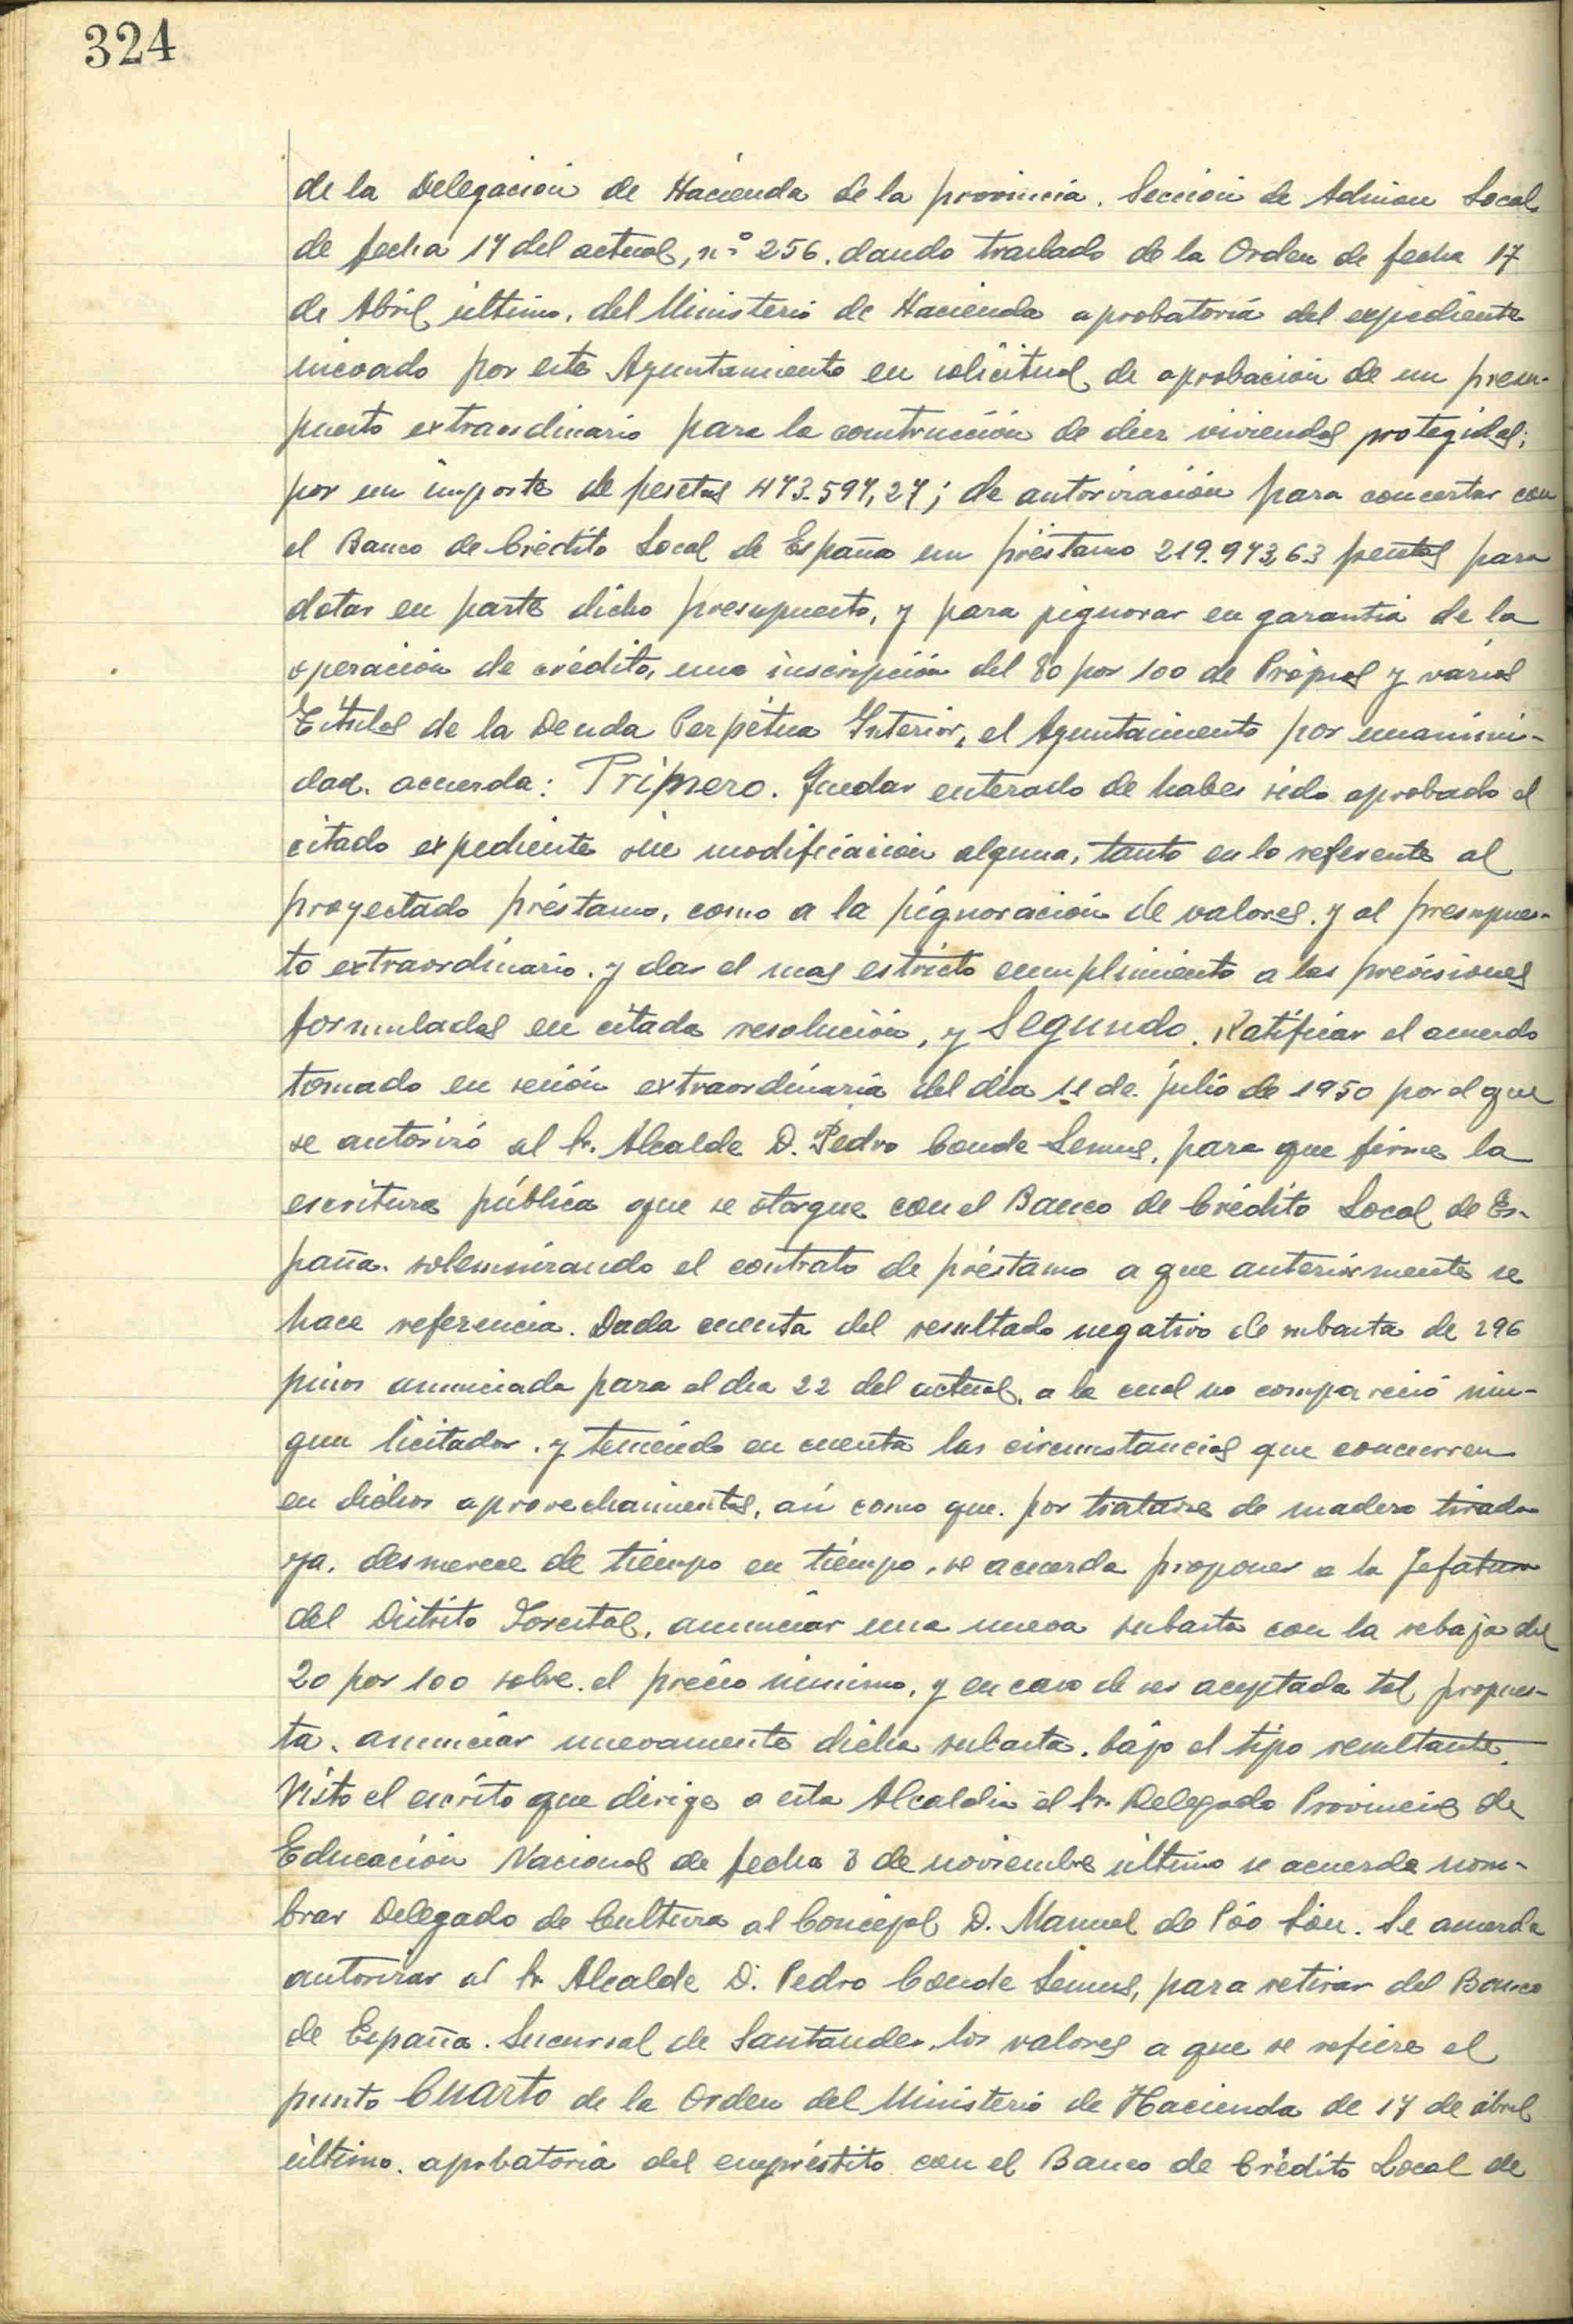 324
de la Delegación de Hacienda de la provincia. Sección de Admon Local,
de fecha 17 del actual, nº 256. dando traslado de la Orden de fecha 17
de Abril último, del Ministerio de Hacienda aprobatoria del expediente
incoado por este Ayuntamiento en solicitud de aprobación de un presu-
puesto extraordinario para la construcción de diez viviendas protegidas;
por un importe de pesetas 473.597,27; de autorización para concertar con
el Banco de Crédito Local de España un préstamo 219.973,63 pesetas para
dotar en parte dicho presupuesto, y para pignorar en garantía de la
operación de crédito, una inscripción del 80 por 100 de Própios y varios
Títulos de la Deuda Perpétua Interior, el Ayuntamiento por unanimi-
dad. acuerda: Primero. Quedar enterado de haber sido aprobado el
citado expediente sin modificación alguna, tanto en lo referente al
proyectado préstamo, como a la pignoración de valores, y al presupues-
to extraordinario. y dar el mas estricto cumplimiento a las previsiones
formuladas en citada resolución, y Segundo. Ratificar el acuerdo
tomado en sesión extraordinaria del dia 11 de julio de 1950 por el que
se autorizó al Sr. Alcalde D. Pedro Conde Lemus, para que firme la
escritura pública que se otorgue con el Banco de Crédito Local de Es-
paña. solemnizando el contrato de préstamo a que anteriormente se
hace referencia. Dada cuenta del resultado negativo de subasta de 296
pinos anunciada para el dia 22 del actual, a la cual no compareció nin-
gun licitador, y teniendo en cuenta las circunstancias que concurren
en dichos aprovechamientos, así como que. por tratarse de madera tirada
ya. desmerece de tiempo en tiempo, se acuerda proponer a la Jefatura
del Distrito Forestal, anunciar una nueva subasta con la rebaja del
20 por 100 sobre el precio mínimo, y en caso de ser aceptada tal propues-
ta, anunciar nuevamente dicha subasta. bajo el tipo resultante.
Visto el escrito que dirige a esta Alcaldia el Sr. Delegado Provincial de
Educación Nacional de fecha 3 de noviembre último se acuerda nom-
brar Delegado de Cultura al Concejal D. Manuel de Póo. Se acuerda
autorizar al Sr. Alcalde D. Pedro Conde Lemus, para retirar del Banco
de España. Sucursal de Santander, los valores a que se refiere el
punto Cuarto de la Orden del Ministerio de Hacienda de 17 de abril
último. aprobatoria del empréstito con el Banco de Crédito Local de